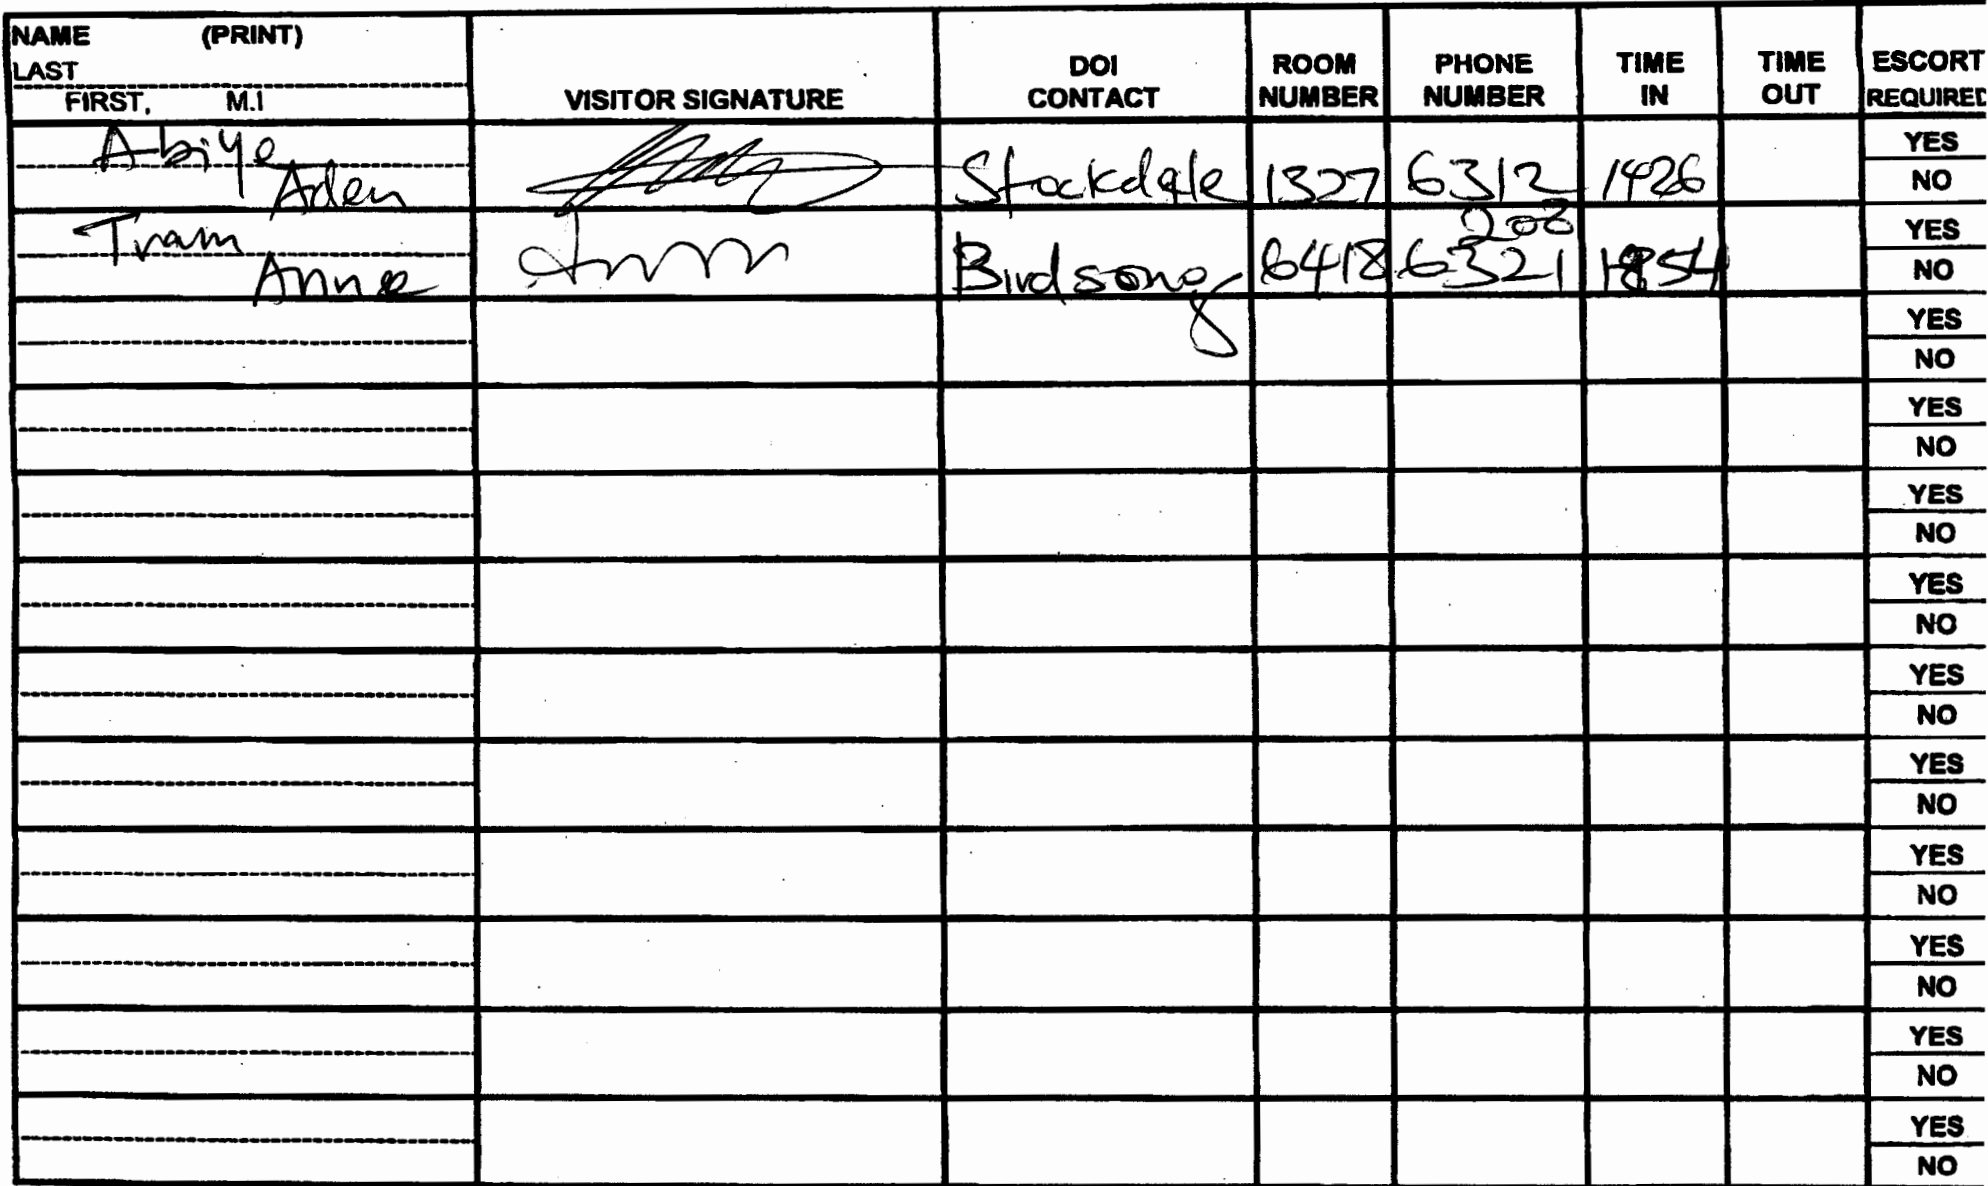 NAME (PRINT)
LAST
FIRST, M.I
VISITOR SIGNATURE
DOI CONTACT
ROOM NUMBER
PHONE NUMBER
TIME IN
TIME OUT
ESCORT REQUIRED
Abiye
Aden
Stockdale 1327 6312 1426
YES
NO
Tram
Anna
Birdsong 6418 208 6321 1854
YES
NO
YES
NO
YES
NO
YES
NO
YES
NO
YES
NO
YES
NO
YES
NO
YES
NO
YES
NO
YES
NO